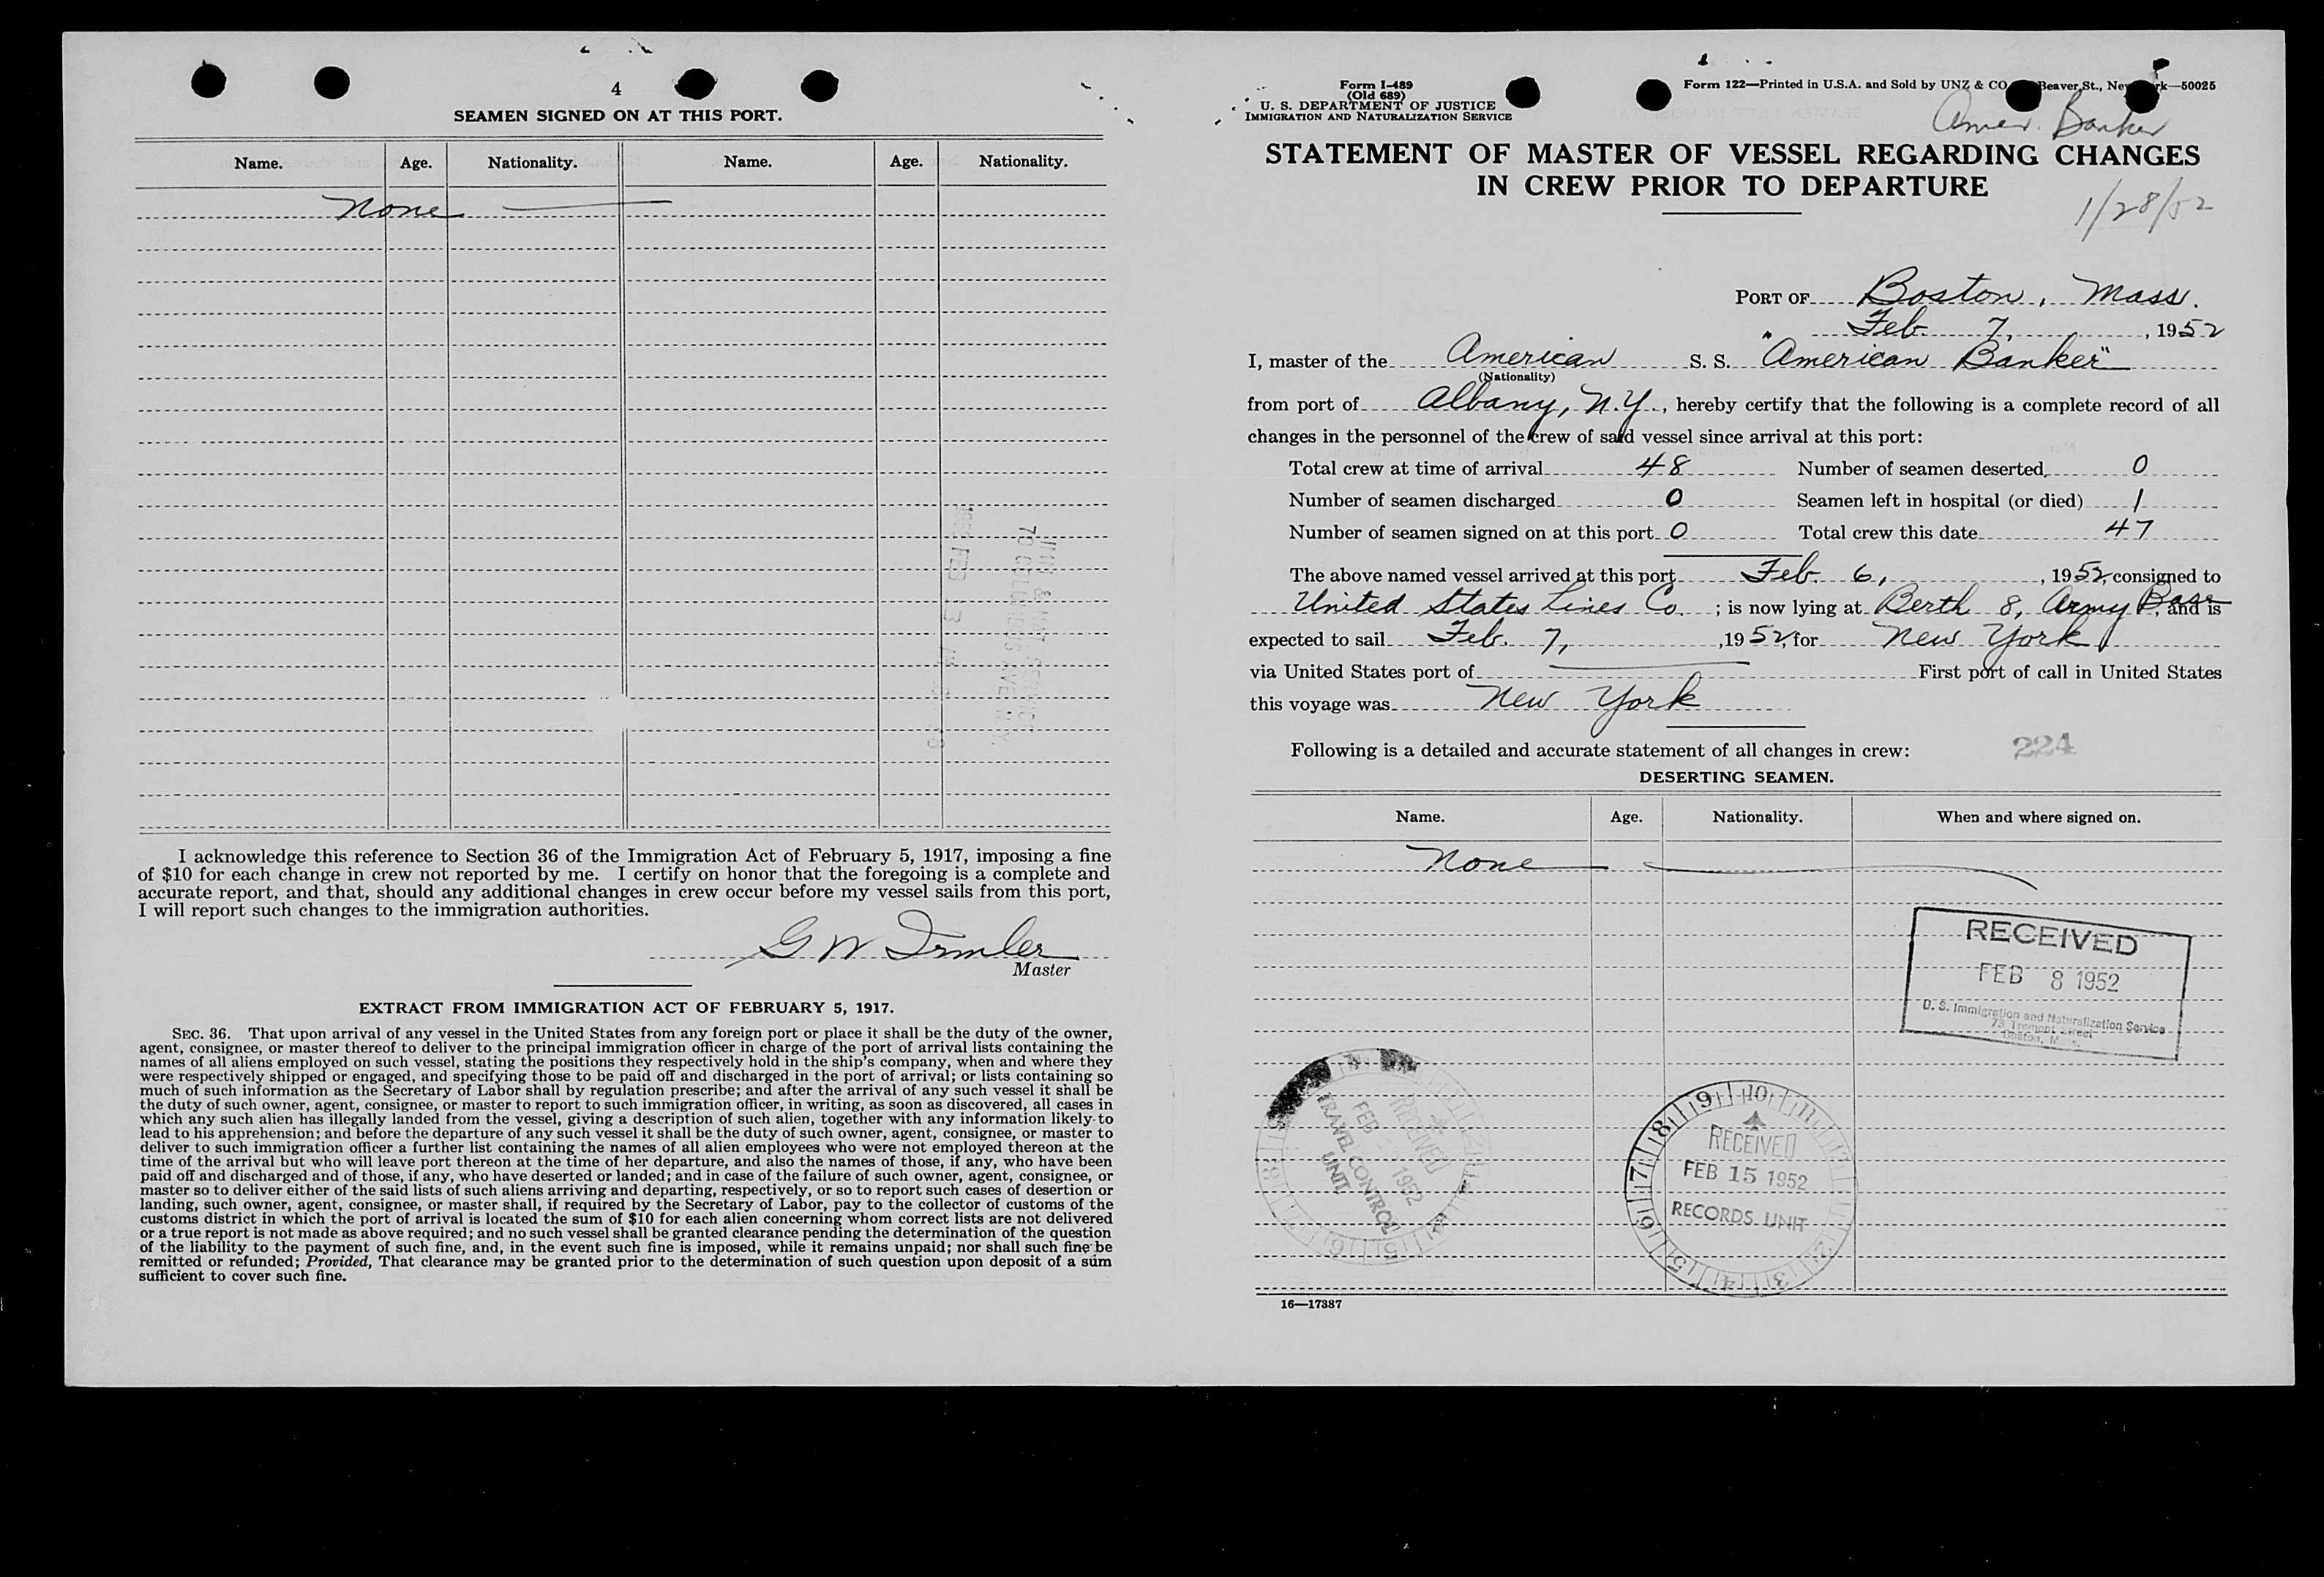 4
SEAMEN SIGNED ON AT THIS PORT.
Name. Age. Nationality. Name. Age. Nationality.
None
I acknowledge this reference to Section 36 of the Immigration Act of February 5, 1917, imposing a fine
of $10 for each change in crew not reported by me. I certify on honor that the foregoing is a complete and
accurate report, and that, should any additional changes in crew occur before my vessel sails from this port,
I will report such changes to the immigration authorities.
G W
Master
EXTRACT FROM IMMIGRATION ACT OF FEBRUARY 5, 1917.
SEC. 36. That upon arrival of any vessel in the United States from any foreign port or place it shall be the duty of the owner,
agent, consignee, or master thereof to deliver to the principal immigration officer in charge of the port of arrival lists containing the
names of all aliens employed on such vessel, stating the positions they respectively hold in the ship's company, when and where they
were respectively shipped or engaged, and specifying those to be paid off and discharged in the port of arrival; or lists containing so
much of such information as the Secretary of Labor shall by regulation prescribe; and after the arrival of any such vessel it shall be
the duty of such owner, agent, consignee, or master to report to such immigration officer, in writing, as soon as discovered, all cases in
which any such alien has illegally landed from the vessel, giving a description of such alien, together with any information likely to
lead to his apprehension; and before the departure of any such vessel it shall be the duty of such owner, agent, consignee, or master to
deliver to such immigration officer a further list containing the names of all alien employees who were not employed thereon at the
time of the arrival but who will leave port thereon at the time of her departure, and also the names of those, if any, who have been
paid off and discharged and of those, if any, who have deserted or landed; and in case of the failure of such owner, agent, consignee, or
master so to deliver either of the said lists of such aliens arriving and departing, respectively, or so to report such cases of desertion or
landing, such owner, agent, consignee, or master shall, if required by the Secretary of Labor, pay to the collector of customs of the
customs district in which the port of arrival is located the sum of $10 for each alien concerning whom correct lists are not delivered
or a true report is not made as above required; and no such vessel shall be granted clearance pending the determination of the question
of the liability to the payment of such fine, and, in the event such fine is imposed, while it remains unpaid; nor shall such fine be
remitted or refunded; Provided, That clearance may be granted prior to the determination of such question upon deposit of a sum
sufficient to cover such fine.
Form I-489
(Old 689)
U. S. DEPARTMENT OF JUSTICE
IMMIGRATION AND NATURALIZATION SERVICE
Form 122—Printed in U.S.A. and Sold by UNZ & CO Beaver St., New York—50025
Amer. Banker
STATEMENT OF MASTER OF VESSEL REGARDING CHANGES
IN CREW PRIOR TO DEPARTURE
1/28/52
PORT OF Boston, Mass.
Feb. 7, , 1952
I, master of the American S. S. "American Banker"
(Nationality)
from port of Albany, N.Y., hereby certify that the following is a complete record of all
changes in the personnel of the crew of said vessel since arrival at this port:
Total crew at time of arrival 48 Number of seamen deserted 0
Number of seamen discharged 0 Seamen left in hospital (or died) 1
Number of seamen signed on at this port 0 Total crew this date 47
The above named vessel arrived at this port Feb. 6, , 1952, consigned to
United States Lines Co. ; is now lying at Berth 8, Army Base, and is
expected to sail Feb. 7, , 1952, for New York
via United States port of First port of call in United States
this voyage was New York
Following is a detailed and accurate statement of all changes in crew:
224
DESERTING SEAMEN.
Name. Age. Nationality. When and where signed on.
None
RECEIVED
FEB 8 1952
U. S. Immigration and Naturalization Service
73 Tremont Street
Boston, Mass.
RECEIVED
FEB 1952
TRAVEL CONTROL
UNIT
RECEIVED
FEB 15 1952
RECORDS UNIT
16—17387